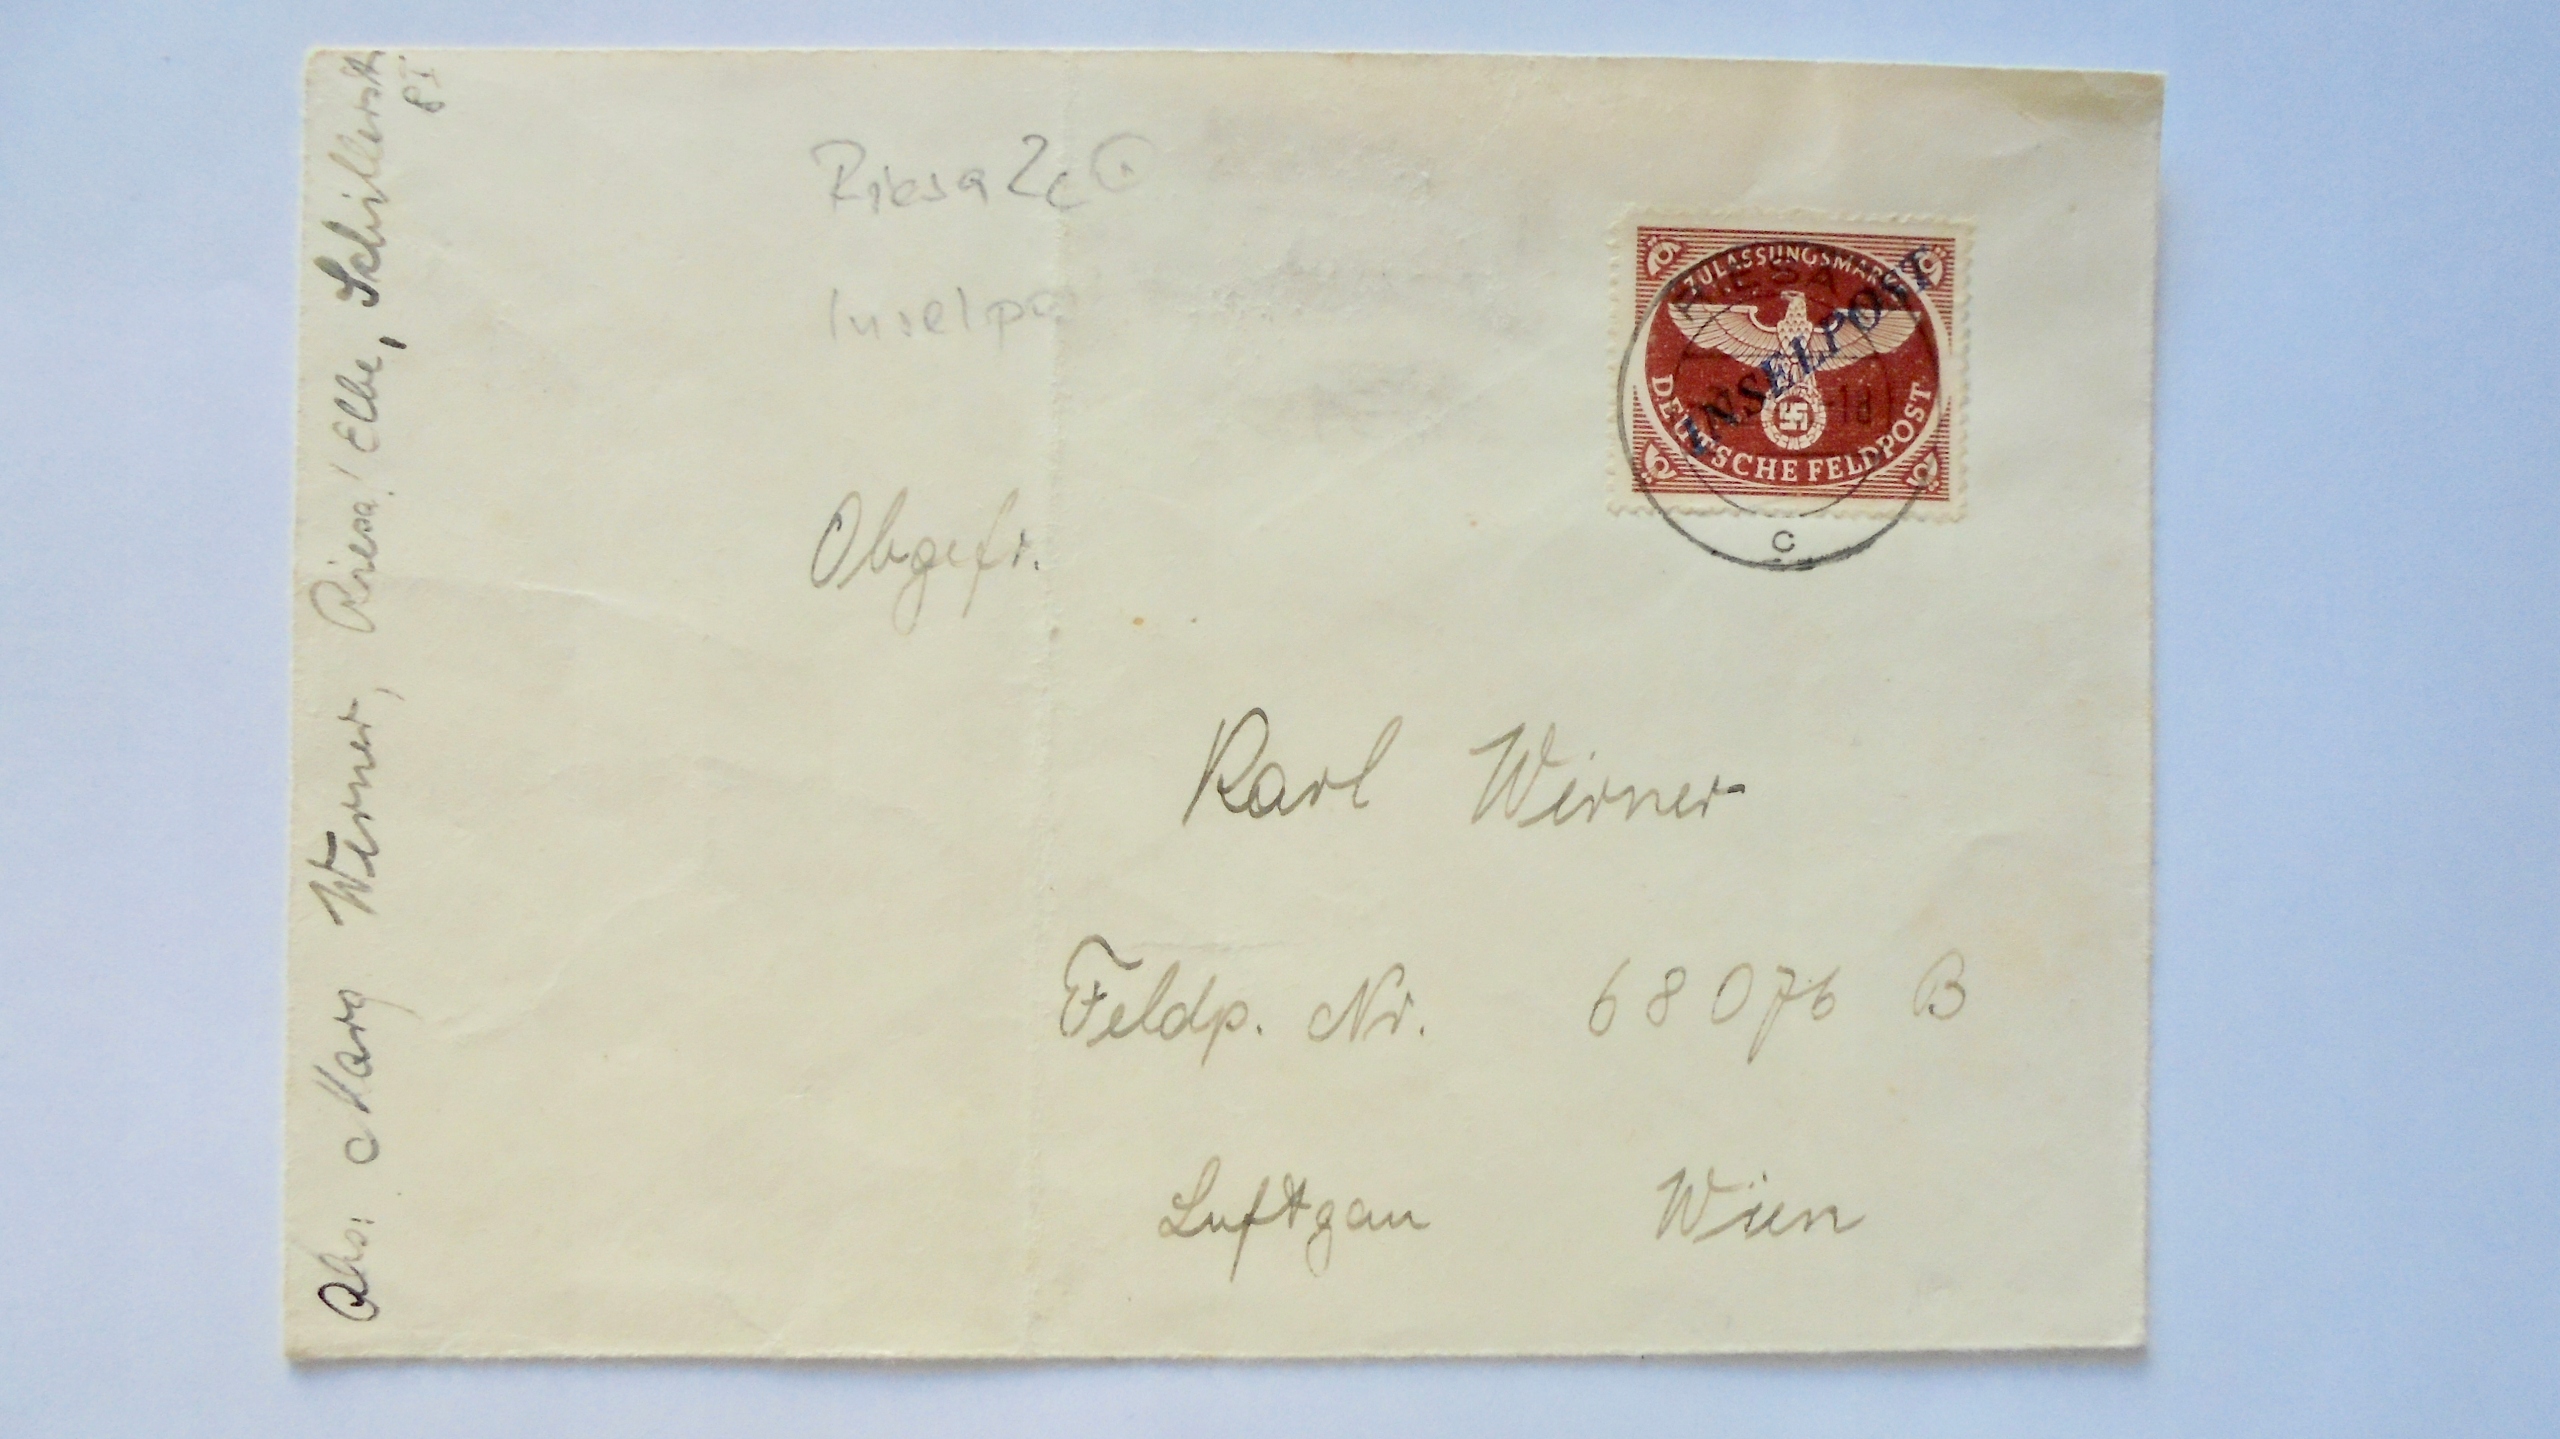 Abs: Marg Werner, Riesa/Elbe, Schillerstr
8I
Riesa 2c
Inselpo
ZULASSUNGSMARKE
RIESA
INSELPOST
-18
DEUTSCHE FELDPOST
c
Obgefr.
Karl Werner
Feldp. Nr. 68076 B
Luftgau Wien